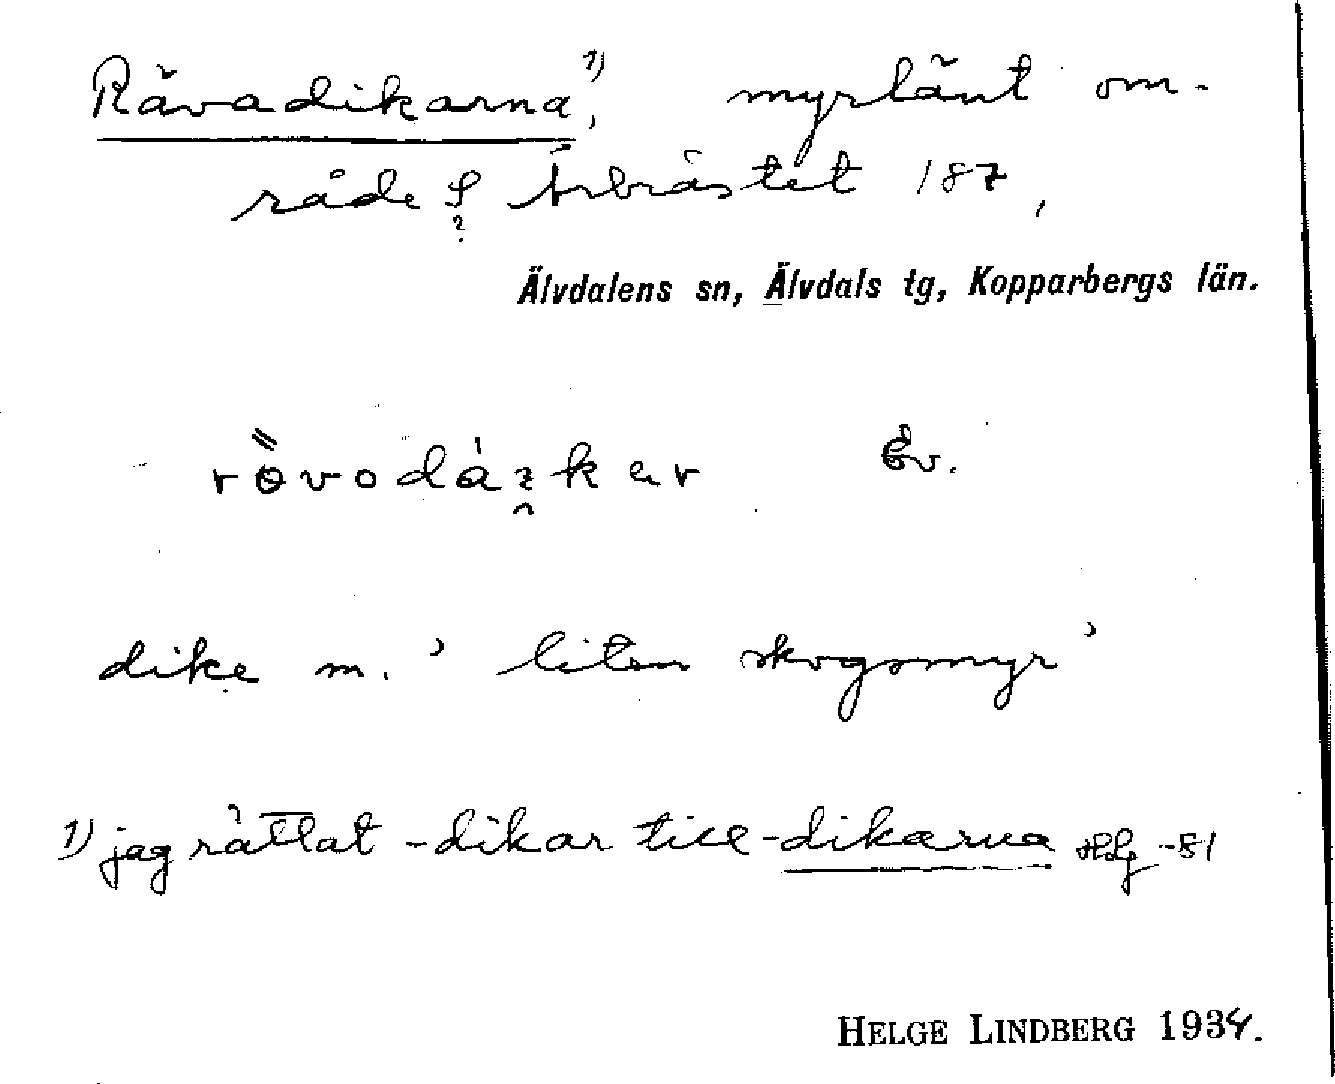 Rävadikarna¹⁾, myrlänt om-
råde S Åsbrästet 187,
Älvdalens sn, Älvdals tg, Kopparbergs län.
rövodáɪkar Öv.
dike m. ’liten skogsmyr’
1) jag rättat -dikar till -dikarna Hlg -51
HELGE LINDBERG 1934.